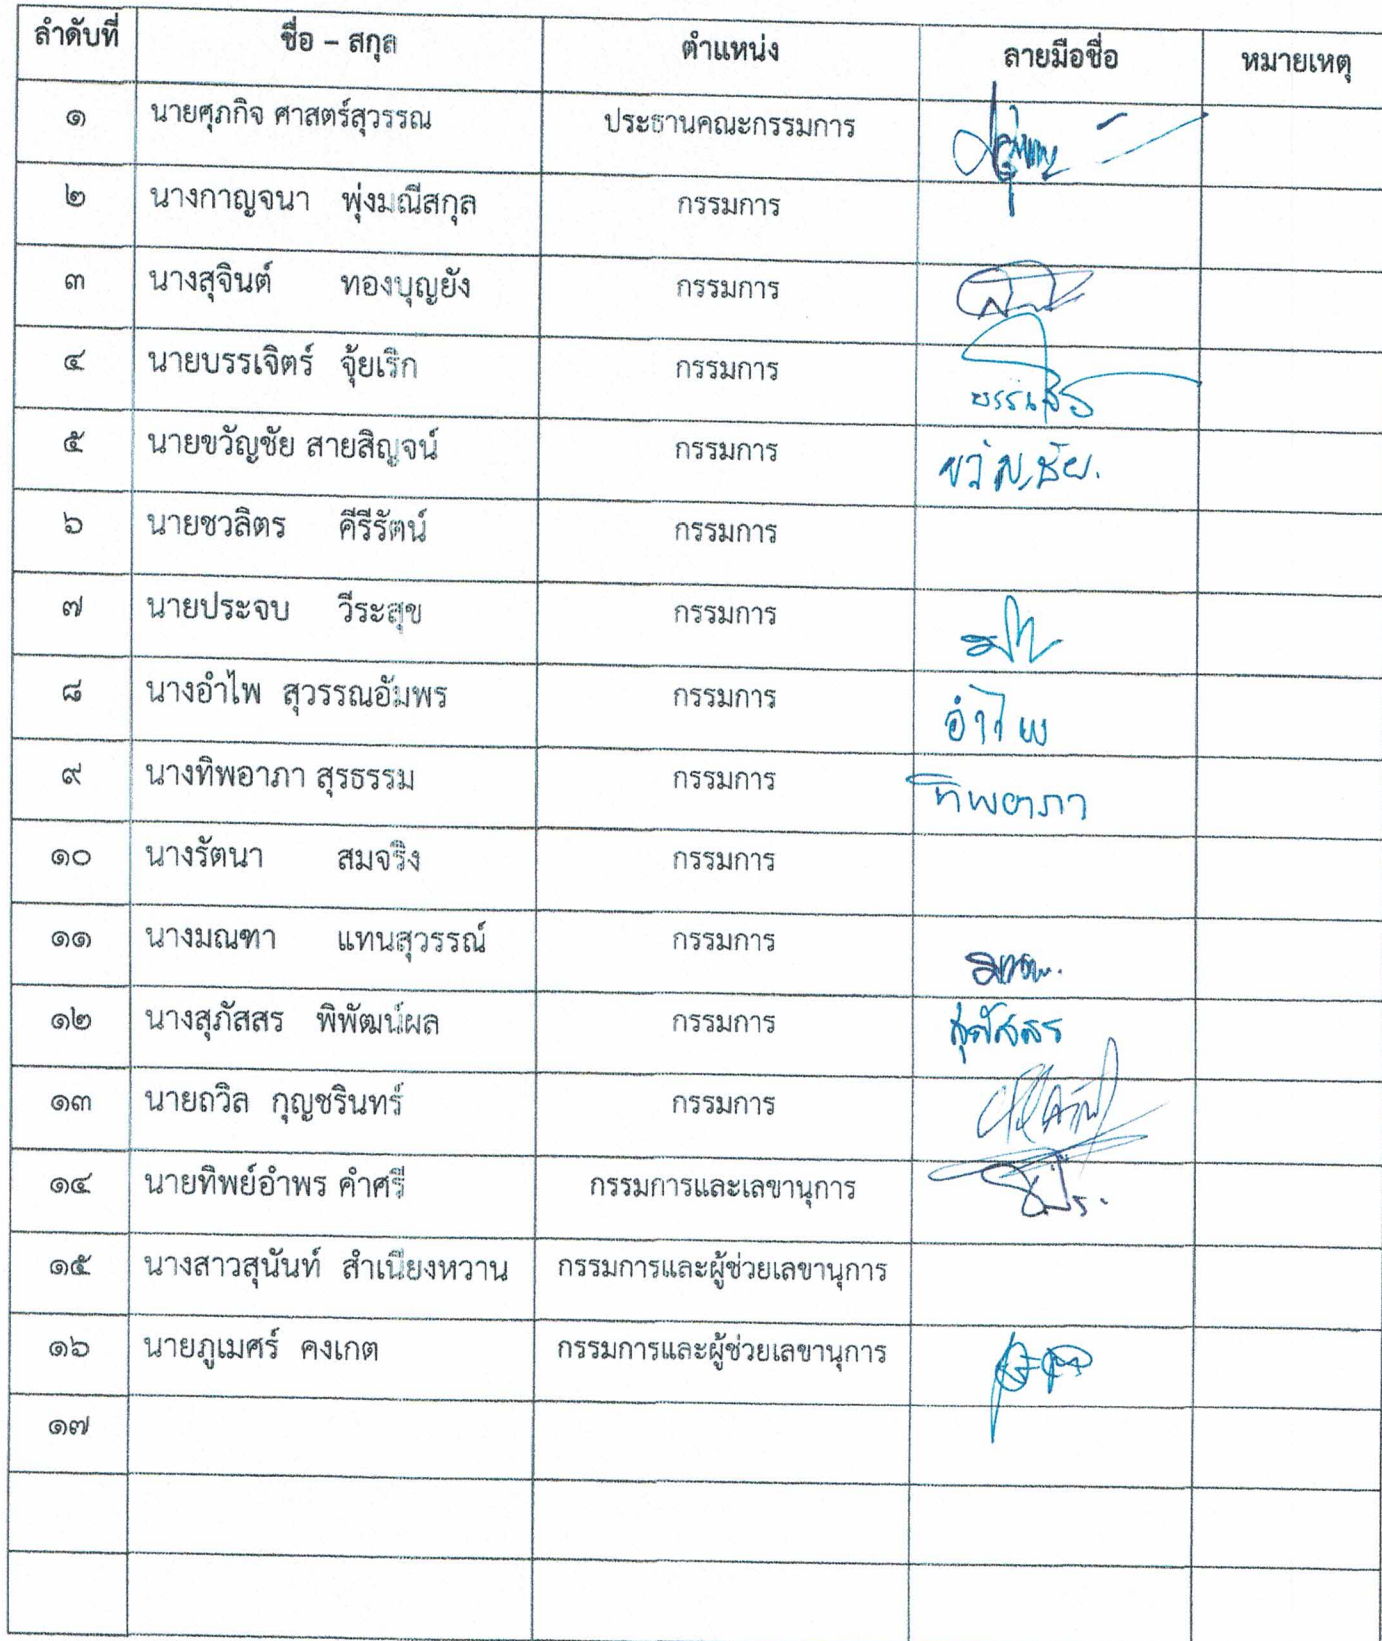 ลำดับที่ ชื่อ – สกุล ตำแหน่ง ลายมือชื่อ หมายเหตุ
๑ นายศุภกิจ ศาสตร์สุวรรณ ประธานคณะกรรมการ
๒ นางกาญจนา พุ่งมณีสกุล กรรมการ
๓ นางสุจินต์ ทองบุญยัง กรรมการ
๔ นายบรรเจิตร์ จุ้ยเริก กรรมการ
๕ นายขวัญชัย สายสิญจน์ กรรมการ ขวัญชัย.
๖ นายชวลิตร คีรีรัตน์ กรรมการ
๗ นายประจบ วีระสุข กรรมการ
๘ นางอำไพ สุวรรณอัมพร กรรมการ อำไพ
๙ นางทิพอาภา สุรธรรม กรรมการ ทิพอาภา
๑๐ นางรัตนา สมจริง กรรมการ
๑๑ นางมณฑา แทนสุวรรณ์ กรรมการ
๑๒ นางสุภัสสร พิพัฒน์ผล กรรมการ สุภัสสร
๑๓ นายถวิล กุญชรินทร์ กรรมการ
๑๔ นายทิพย์อำพร คำศรี กรรมการและเลขานุการ
๑๕ นางสาวสุนันท์ สำเนียงหวาน กรรมการและผู้ช่วยเลขานุการ
๑๖ นายภูเมศร์ คงเกต กรรมการและผู้ช่วยเลขานุการ
๑๗